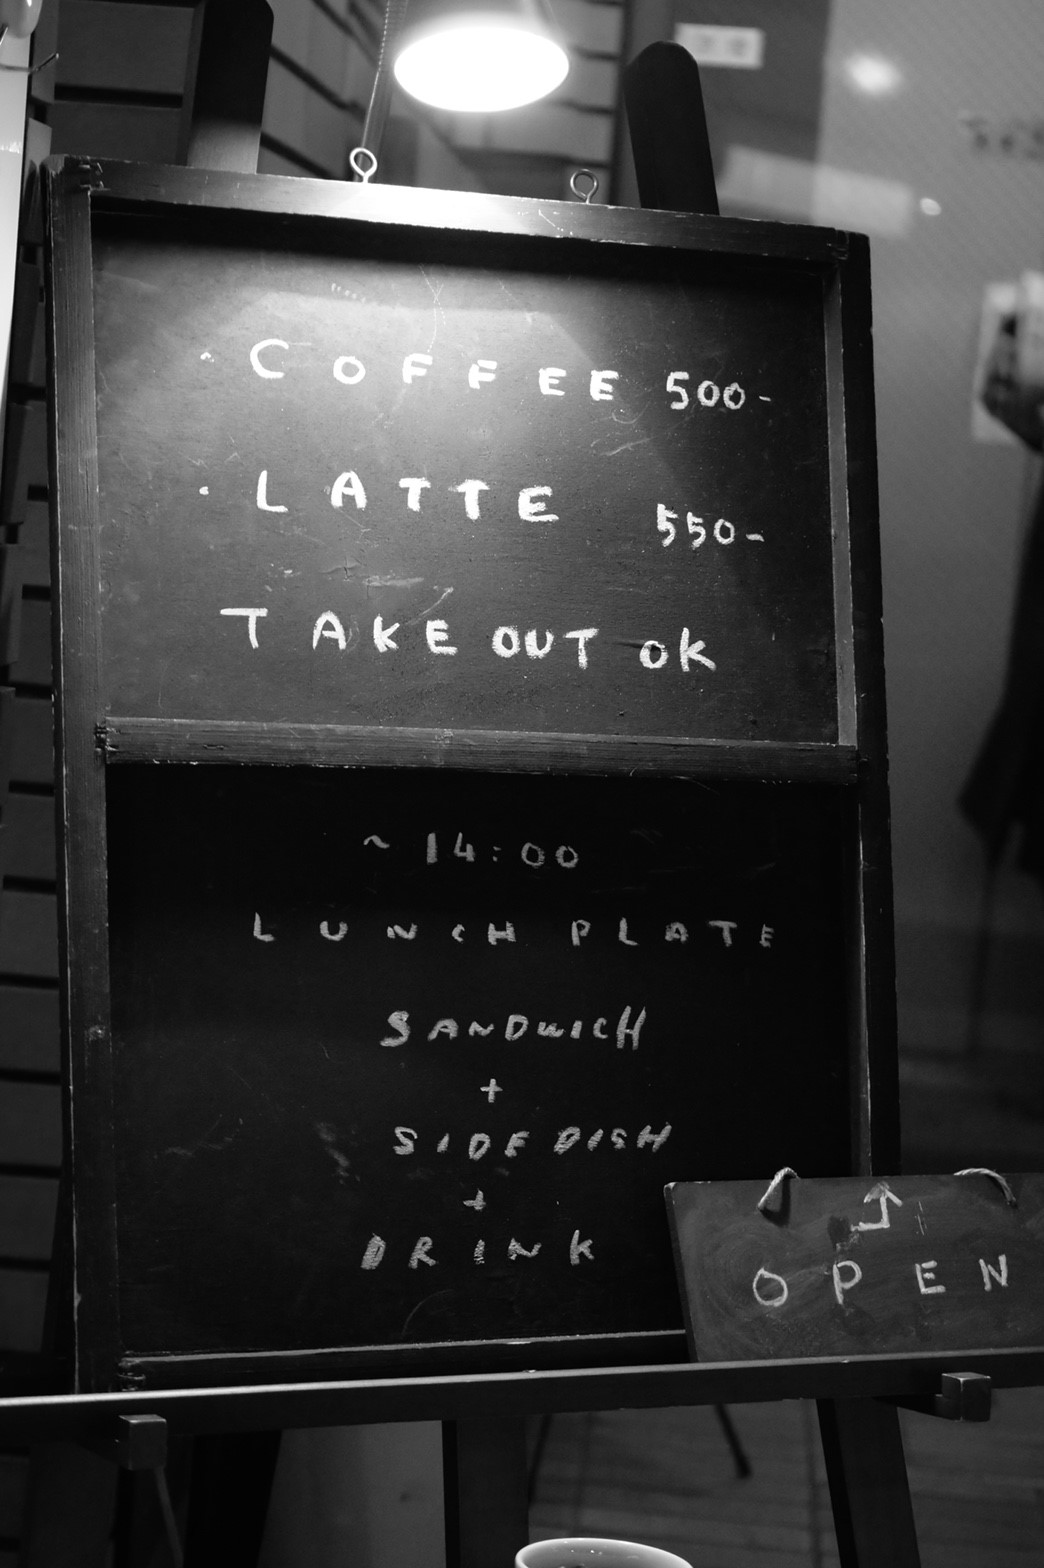 · COFFEE 500-
· LATTE 550-
TAKE OUT OK
~14:00
LUNCH PLATE
SANDWICH
+
SIDE DISH
+
DRINK
OPEN